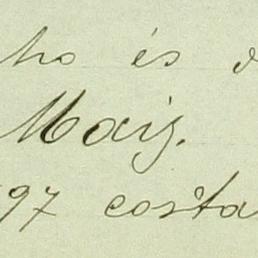 ho és
Maig.
97 costa